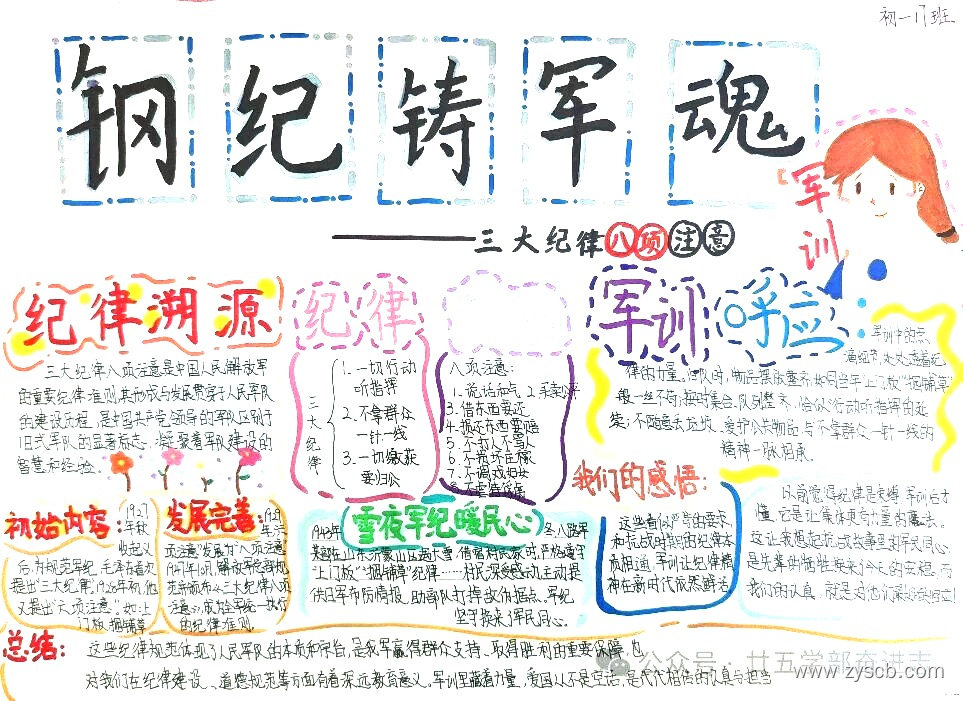 初一17班
钢纪铸军魂
三大纪律八项注意
军训
纪律溯源
三大纪律八项注意是中国人民解放军
的重要纪律准则,其形成与发展贯穿于人民军队
的建设历程,是中国共产党领导的军队区别于
旧式军队的显著标志,凝聚着军队建设的
智慧和经验。
纪律
三大纪律
1.一切行动
听指挥
2.不拿群众
一针一线
3.一切缴获
要归公
八项注意:
1.说话和气 2.买卖公平
3.借东西要还
4.损坏东西要赔
5.不打人不骂人
6.不损坏庄稼
7.不调戏妇女
8.不虐待俘虏
军训呼应
军训中的点
滴细节,处处透着纪
律的力量。归队时,物品摆放整齐,如同当年"上门板""捆铺草"
般一丝不苟;按时集合,队列整齐,恰似"行动听指挥"的延
续;不随意丢垃圾、爱护公共物品,与"不拿群众一针一线"的
精神一脉相承。
初始内容:
1927
年秋
收起义
后,为规范军纪,毛泽东首次
提出"三大纪律",1928年初,他
又提出"六项注意",如"上
门板、捆铺草
发展完善:
1929
年,六
项注意"发展为"八项注意
1947年10月,解放军总部规
范并颁布"三大纪律八项
注意",成为全军统一执行
的纪律准则。
雪夜军纪暖民心
冬,八路军
上门板""捆铺草"纪律……村民深受感动,主动提
供日军布防情报,助部队打掉敌伪据点。军纪
坚守换来了军民同心。
我们的感悟:
这些看似严苛的要求,
和抗战时期的纪律本
质相通,军训让纪律精
神在新时代依然鲜活
以前觉得纪律是束缚,军训后才
懂,它是让集体更有力量的魔法。
这让我想起抗战故事里的军民同心
是先辈的牺牲换来了今天的安稳,而
我们的认真,就是对他们最好的呼应!
总结:
这些纪律规范体现了人民军队的本质和宗旨,是我军赢得群众支持、取得胜利的重要保障,也
对我们在纪律建设、道德规范等方面有着深远教育意义。军训里藏着力量,爱国从不是空话,是代代相传的认真与担当
公众号·廿五学部奋进志
www.zyscb.com